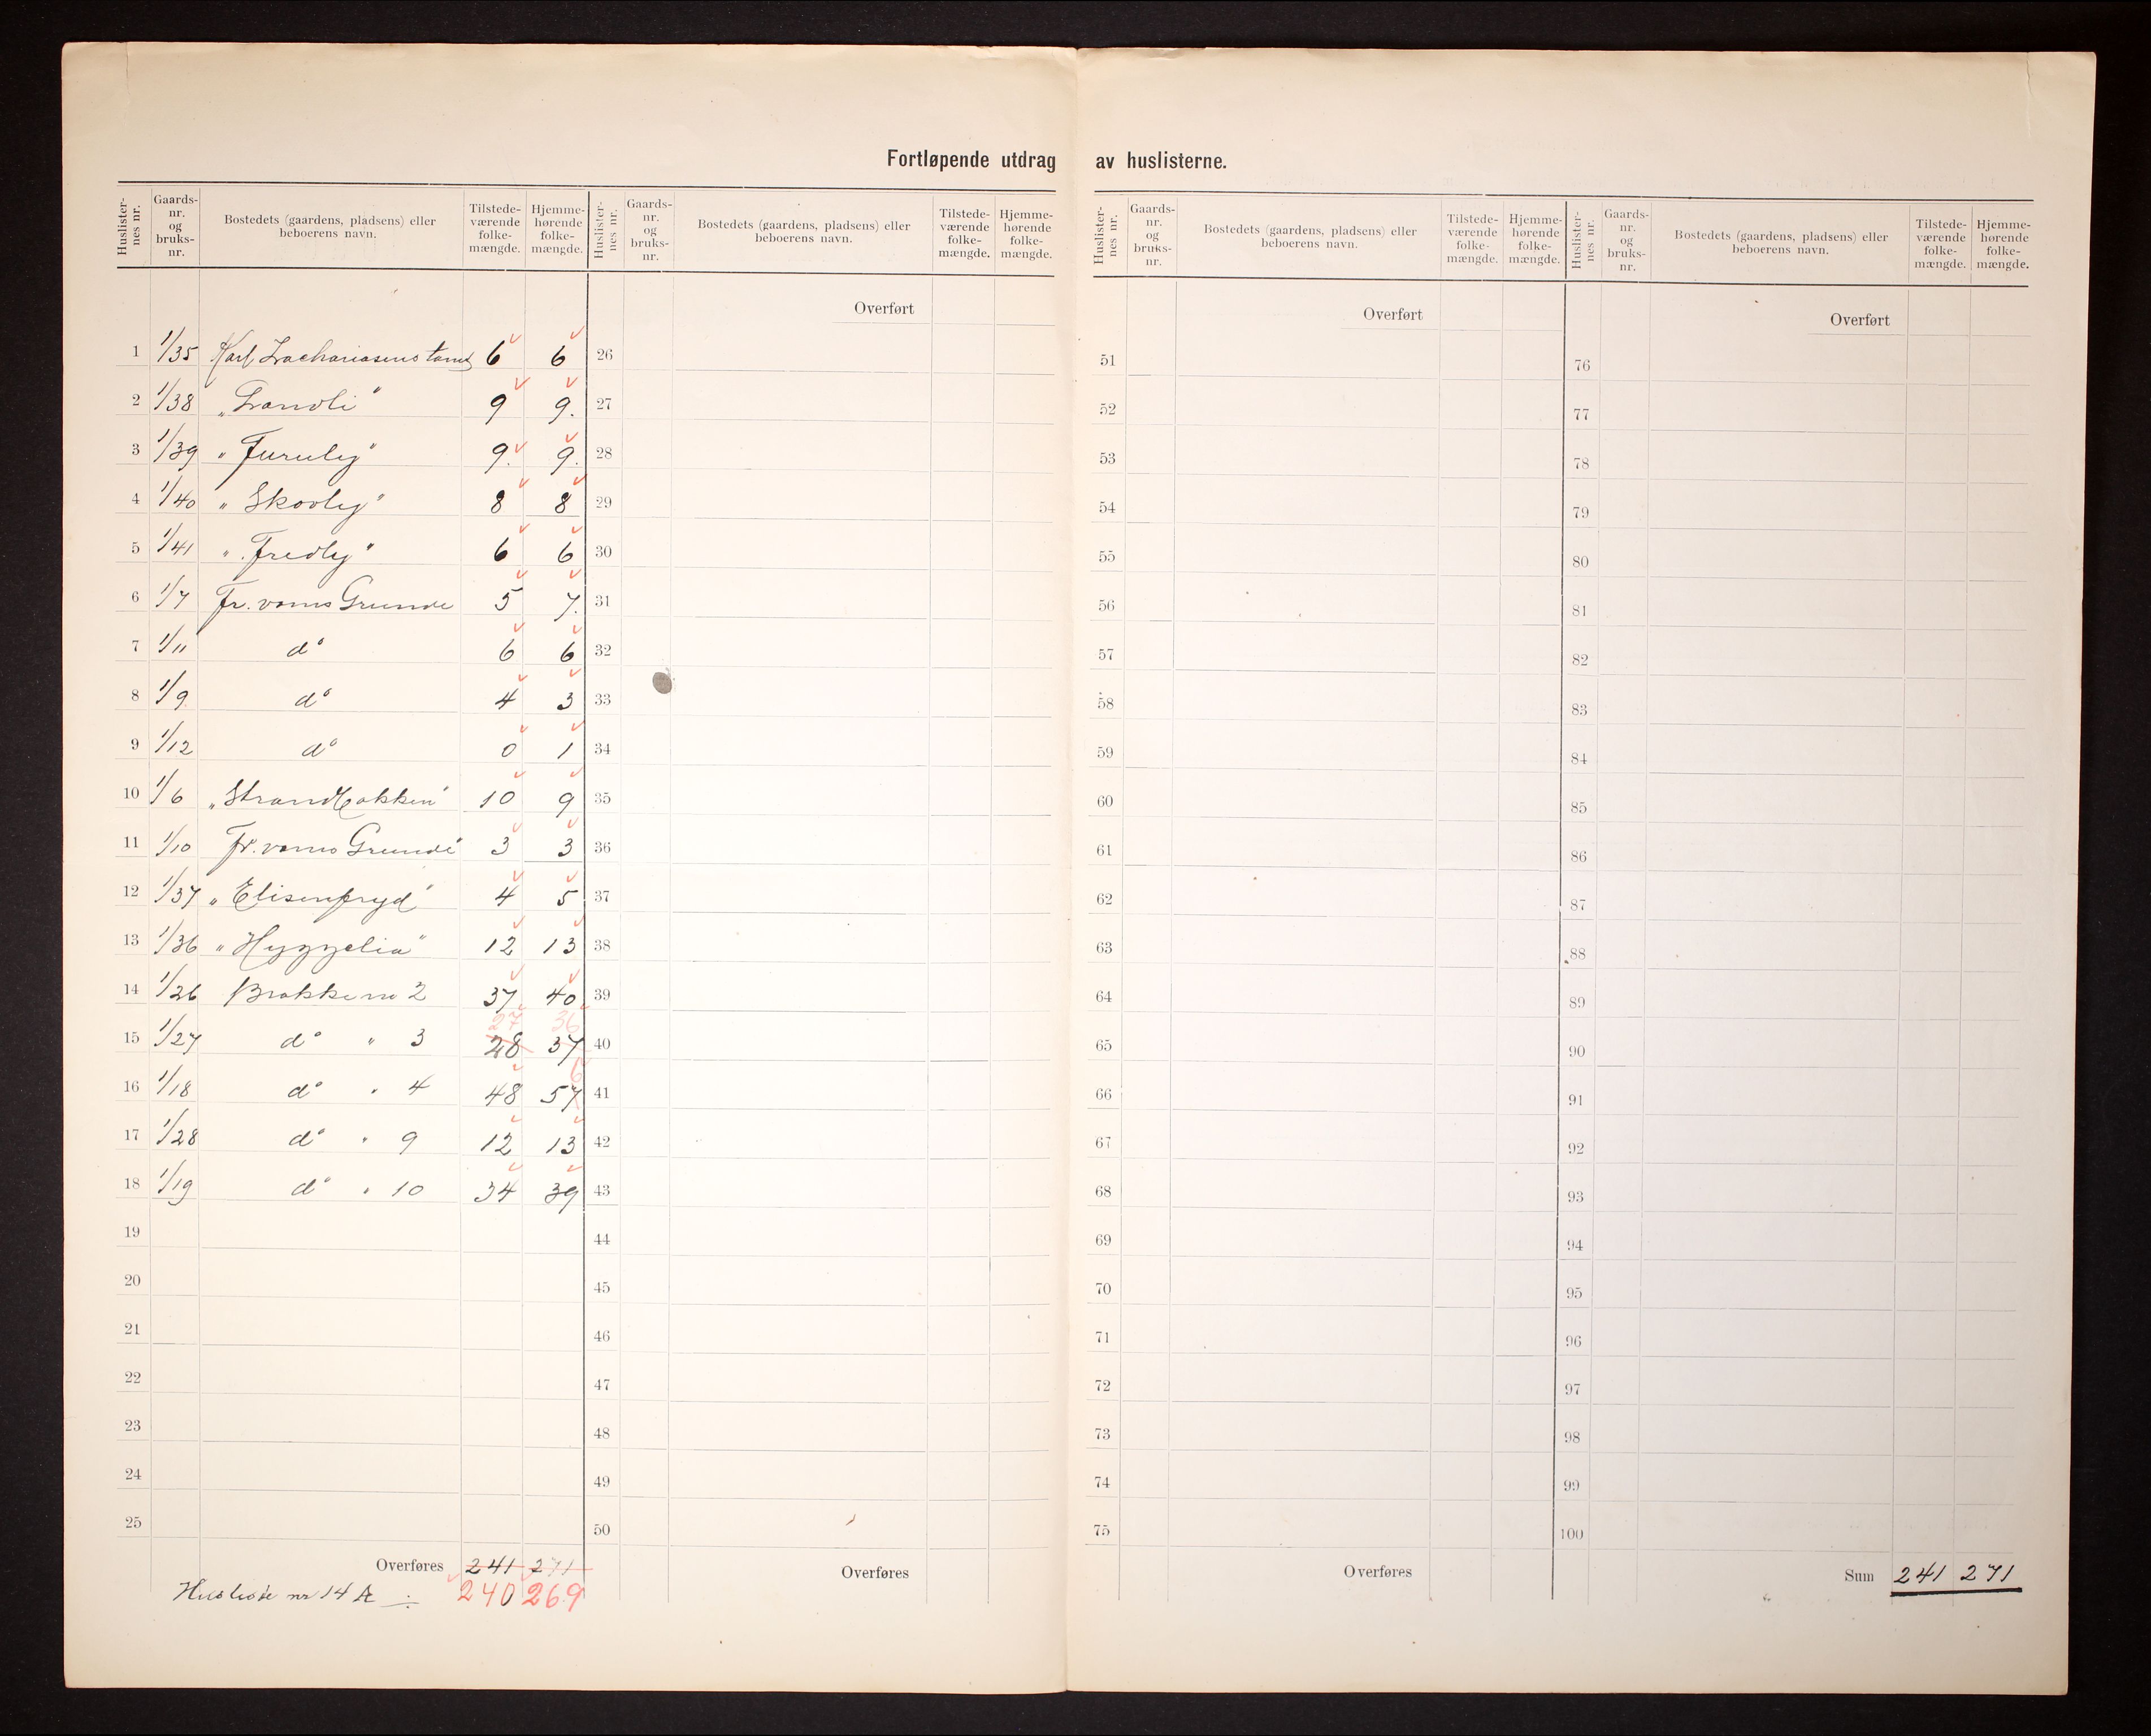 Fortløpende utdrag av huslisterne.
Huslister-nes nr. Gaards-nr. og bruks-nr. Bostedets (gaardens, pladsens) eller beboerens navn. Tilstede-værende folke-mængde. Hjemme-hørende folke-mængde. Huslister-nes nr. Gaards-nr. og bruks-nr. Bostedets (gaardens, pladsens) eller beboerens navn. Tilstede-værende folke-mængde. Hjemme-hørende folke-mængde. Huslister-nes nr. Gaards-nr. og bruks-nr. Bostedets (gaardens, pladsens) eller beboerens navn. Tilstede-værende folke-mængde. Hjemme-hørende folke-mængde. Huslister-nes nr. Gaards-nr. og bruks-nr. Bostedets (gaardens, pladsens) eller beboerens navn. Tilstede-værende folke-mængde. Hjemme-hørende folke-mængde.
Overført Overført Overført
1 1/35 Karl Zachariasens tomt 6 6 26 51 76
2 1/38 9 9. 27 52 77
3 1/39 "Furuly" 9. 9. 28 53 78
4 1/40 "Skovly" 8 8 29 54 79
5 1/41 "Fredly" 6 6 30 55 80
6 1/7 Fr. vorns Grunde 5 7. 31 56 81
7 1/11 do 6 6 32 57 82
8 1/9 do 4 3 33 58 83
9 1/12 do 0 1 34 59 84
10 1/6 "Strandbakken" 10 9 35 60 85
11 1/10 Fr. vorns Grunde 3 3 36 61 86
12 1/37 "Elisenfryd" 4 5 37 62 87
13 1/36 "Hyggelia" 12 13 38 63 88
14 1/26 Brakke no 2 37 40 39 64 89
27 36
15 1/27 do " 3 28 37 40 65 90
6
16 1/18 do " 4 48 57 41 66 91
17 1/28 do " 9 12 13 42 67 92
18 1/19 do " 10 34 39 43 68 93
19 44 69 94
20 45 70 95
21 46 71 96
22 47 72 97
23 48 73 98
24 49 74 99
25 50 75 100
Overføres 241 271 Overføres Overføres Sum 241 271
Husliste nr 14 A ÷ 240 269